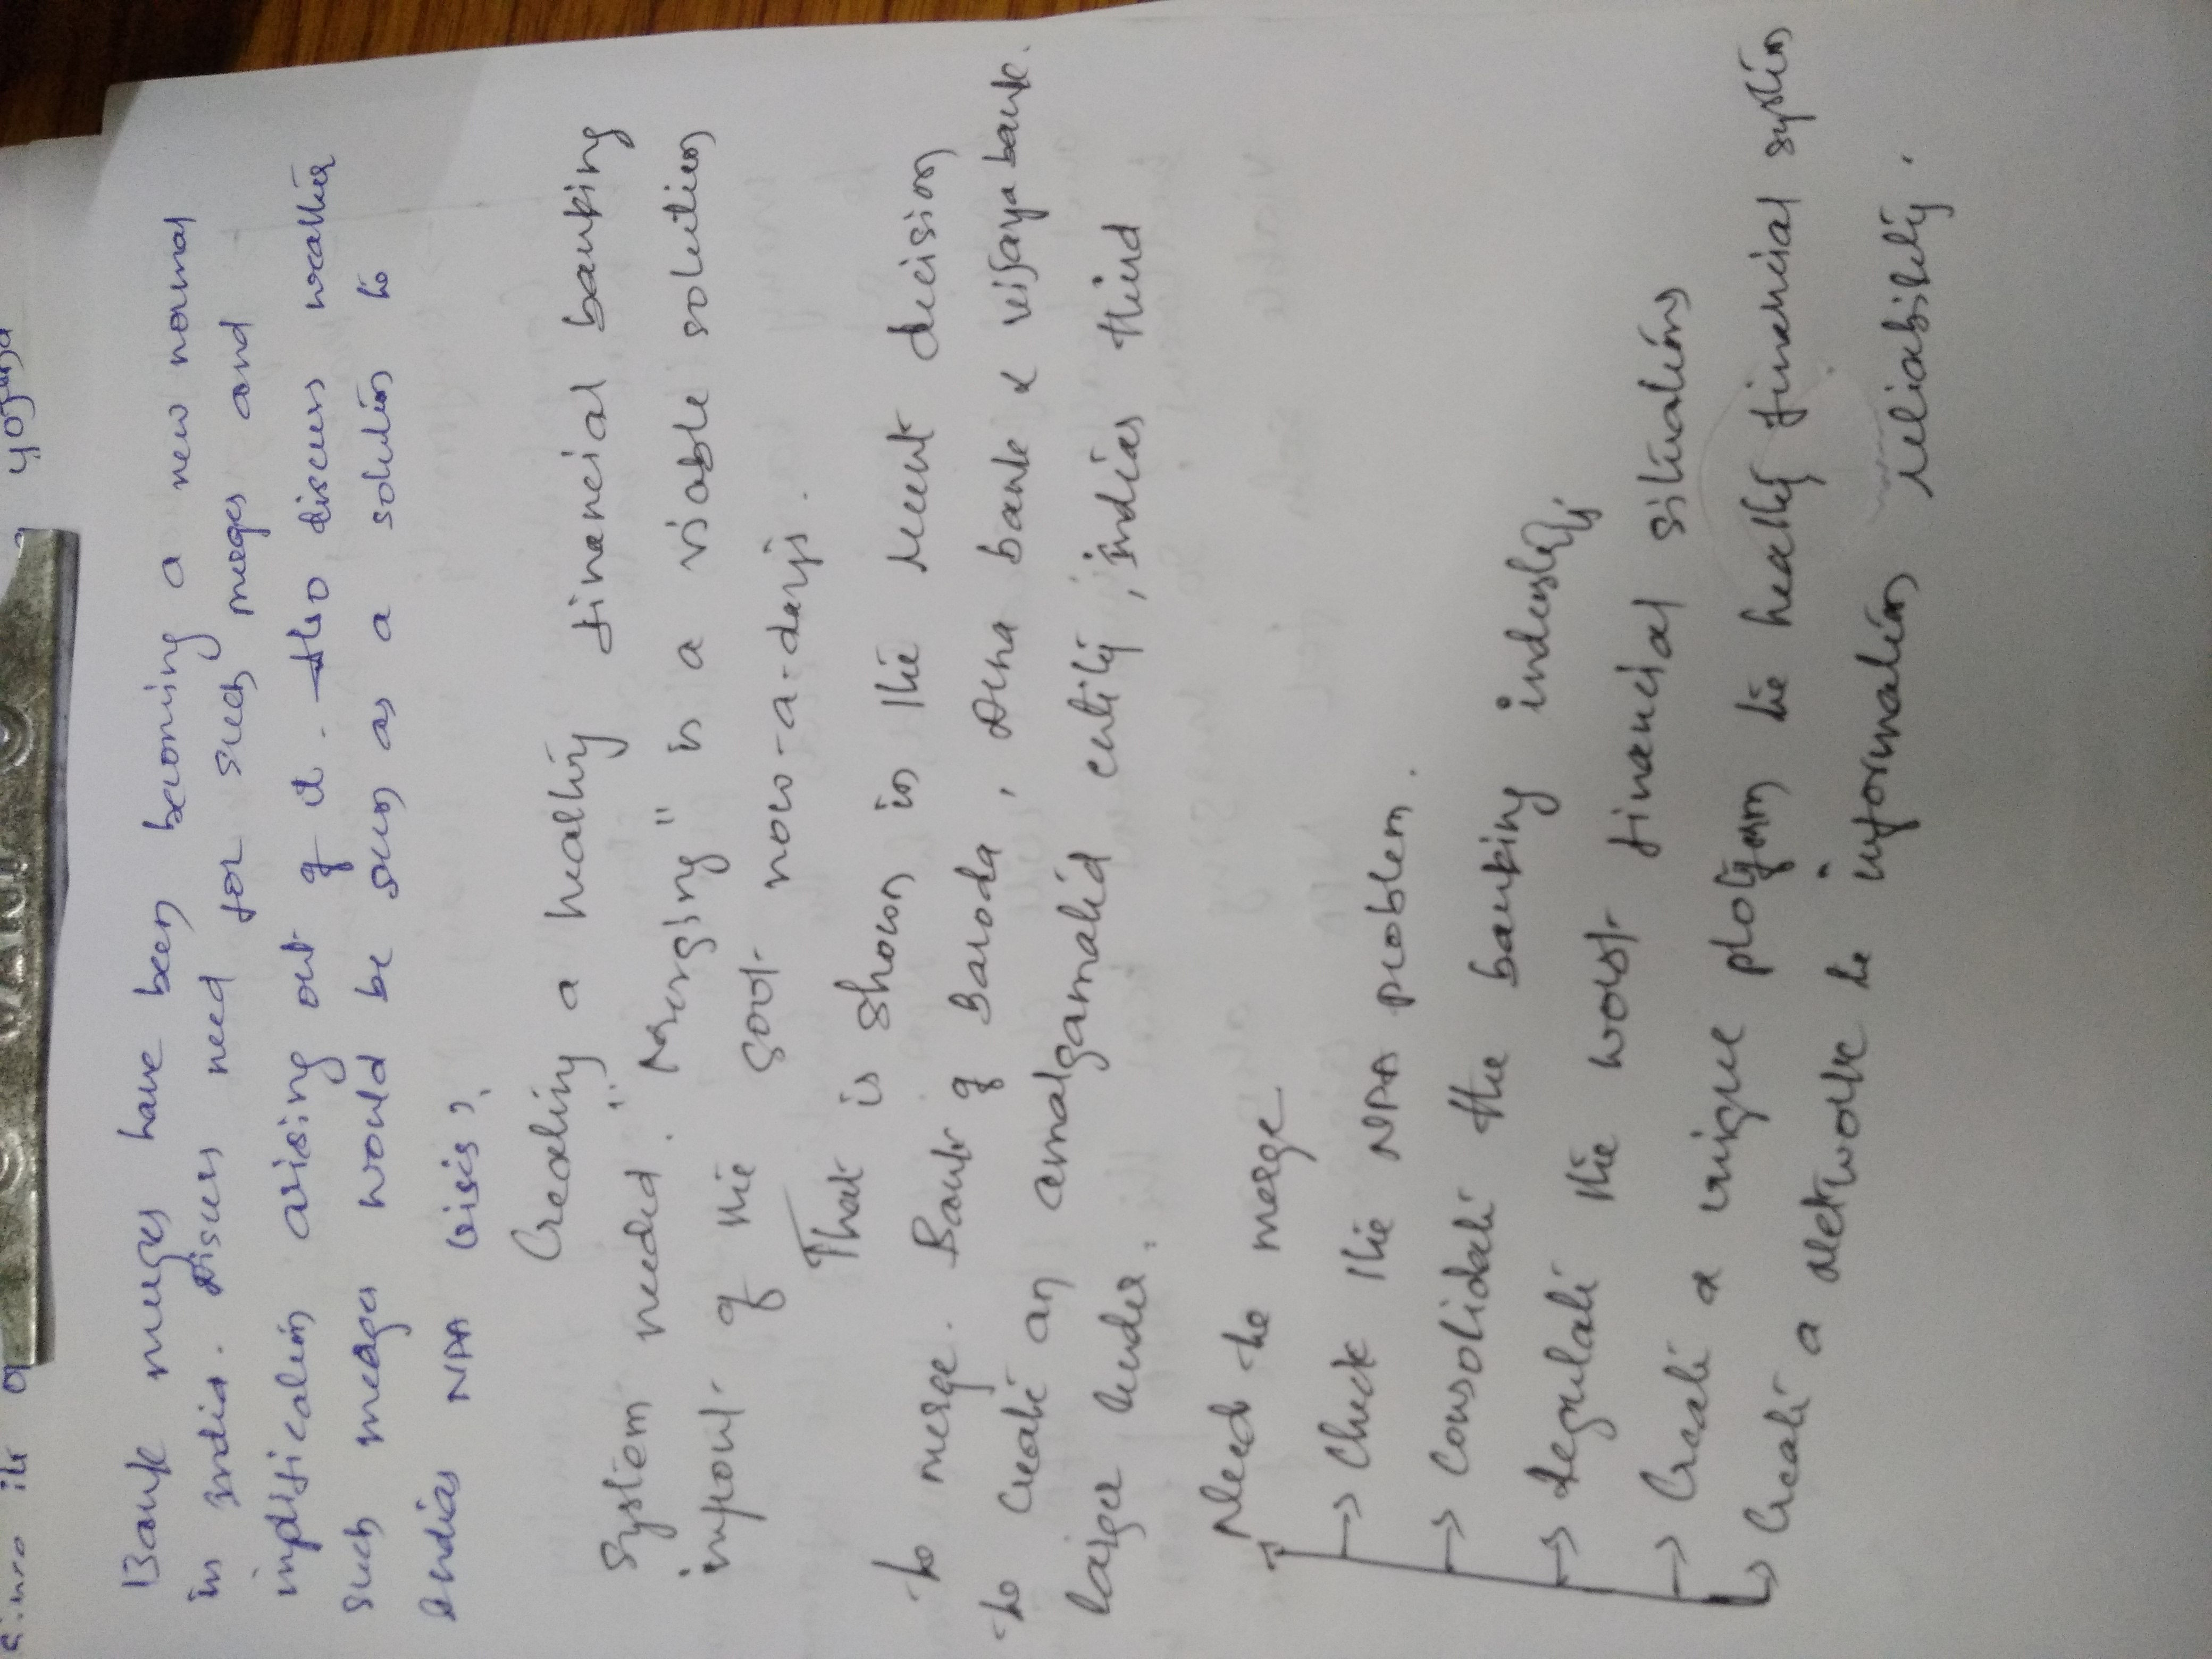 yojana
Bank merges have been becoming a new normal
in India. Discuss need for such merges and
implification arising out of it. Also discuss weather
such merges would be seen as a solution to
Indias NPA crisis?
Creating a healthy financial banking
system needed. "Merging" is a viable solution
input of the govt now-a-days.
That is shown in the recent decision
to merge. Bank of Baroda, Dena bank & vijaya bank.
to create an amalgamated entity, indias third
larger lender.
Need to merge
→ Check the NPA problem.
→ Consolidate the banking industry
→ Regulate the worst financial situations
→ Create a unique platform to healthy financial system
→ Create a network to information reliability.